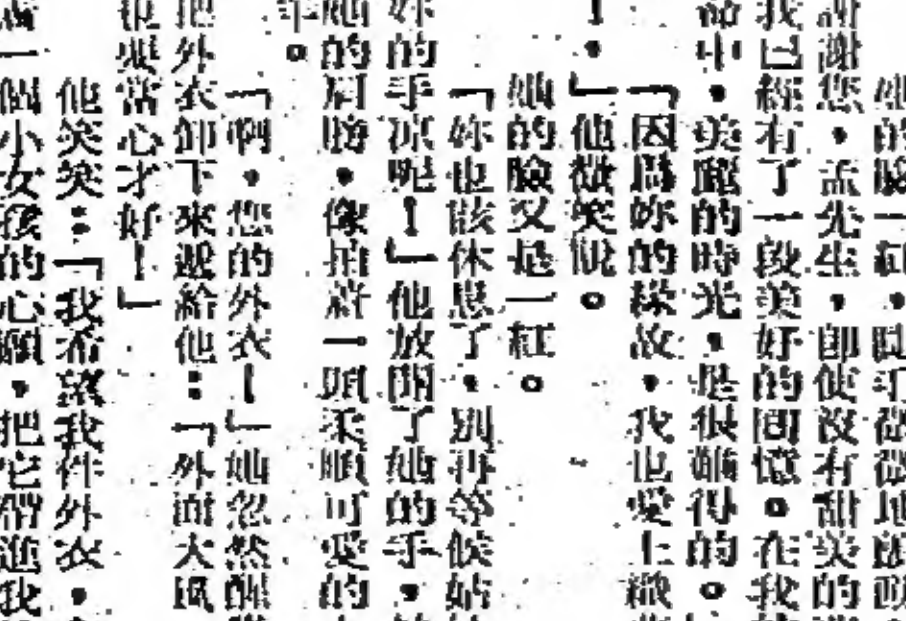 她的臉一紅,
謝謝您,孟先生,即使沒有甜美的
我已經有了一段美好的回憶。在我
命中,美麗的時光,是很難得的。
「因為妳的緣故,我也愛上
!」他微笑說。
她的臉又是一紅。
「妳也該休息了,別再等候姑
妳的手涼呢!」他放開了她的手,
她的肩膀,像拍著一頭柔順可愛的
羊。
「啊,您的外衣!」她忽然醒
把外衣卸下來遞給他:「外面大風
也要當心才好!」
他笑笑:「我希望我件外衣,
一個小女孩的心願,把它帶進我